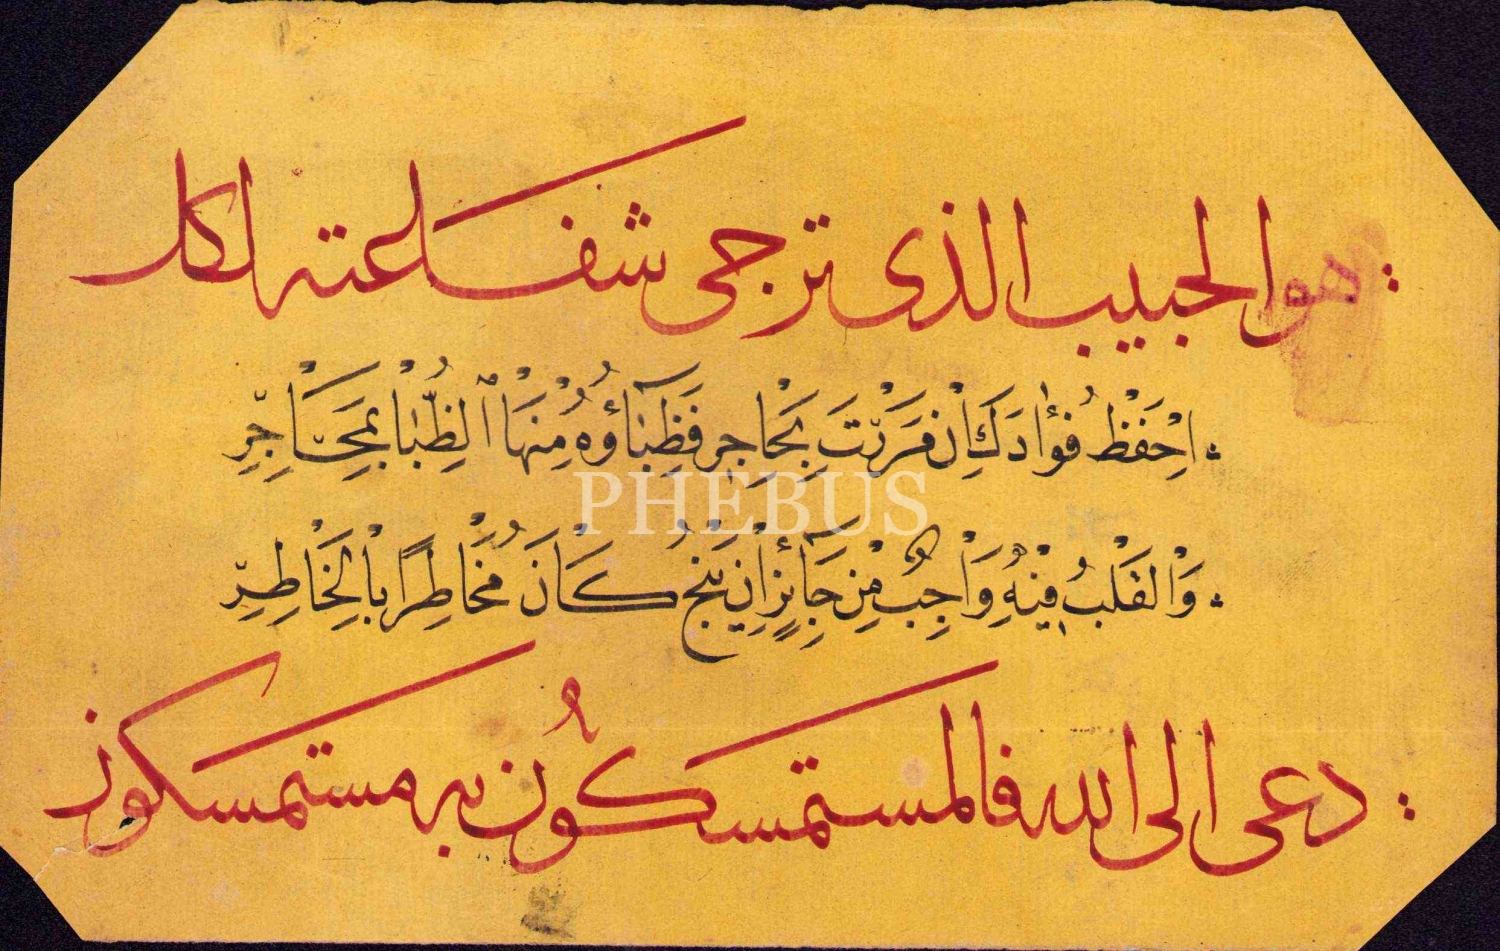 هو الحبيب الذى ترجى شفاعته لكل
اِحْفَظْ فُؤٰادَكَ اِنْ مَرَرْتَ بِحَاجِرٍ فَظِبَآؤُهُ مِنْهَا الظُّبَا بِمَحَاجِرِ
PHEBUS
وَالْقَلْبُ فِيْهِ وَاجِبٌ مِنْ جَآئِزٍ اِنْ يَنْجُ كَانَ مُخَاطِرًا بِالْخَاطِرِ
دعى الى الله فالمستمسكُون به مستمسكون